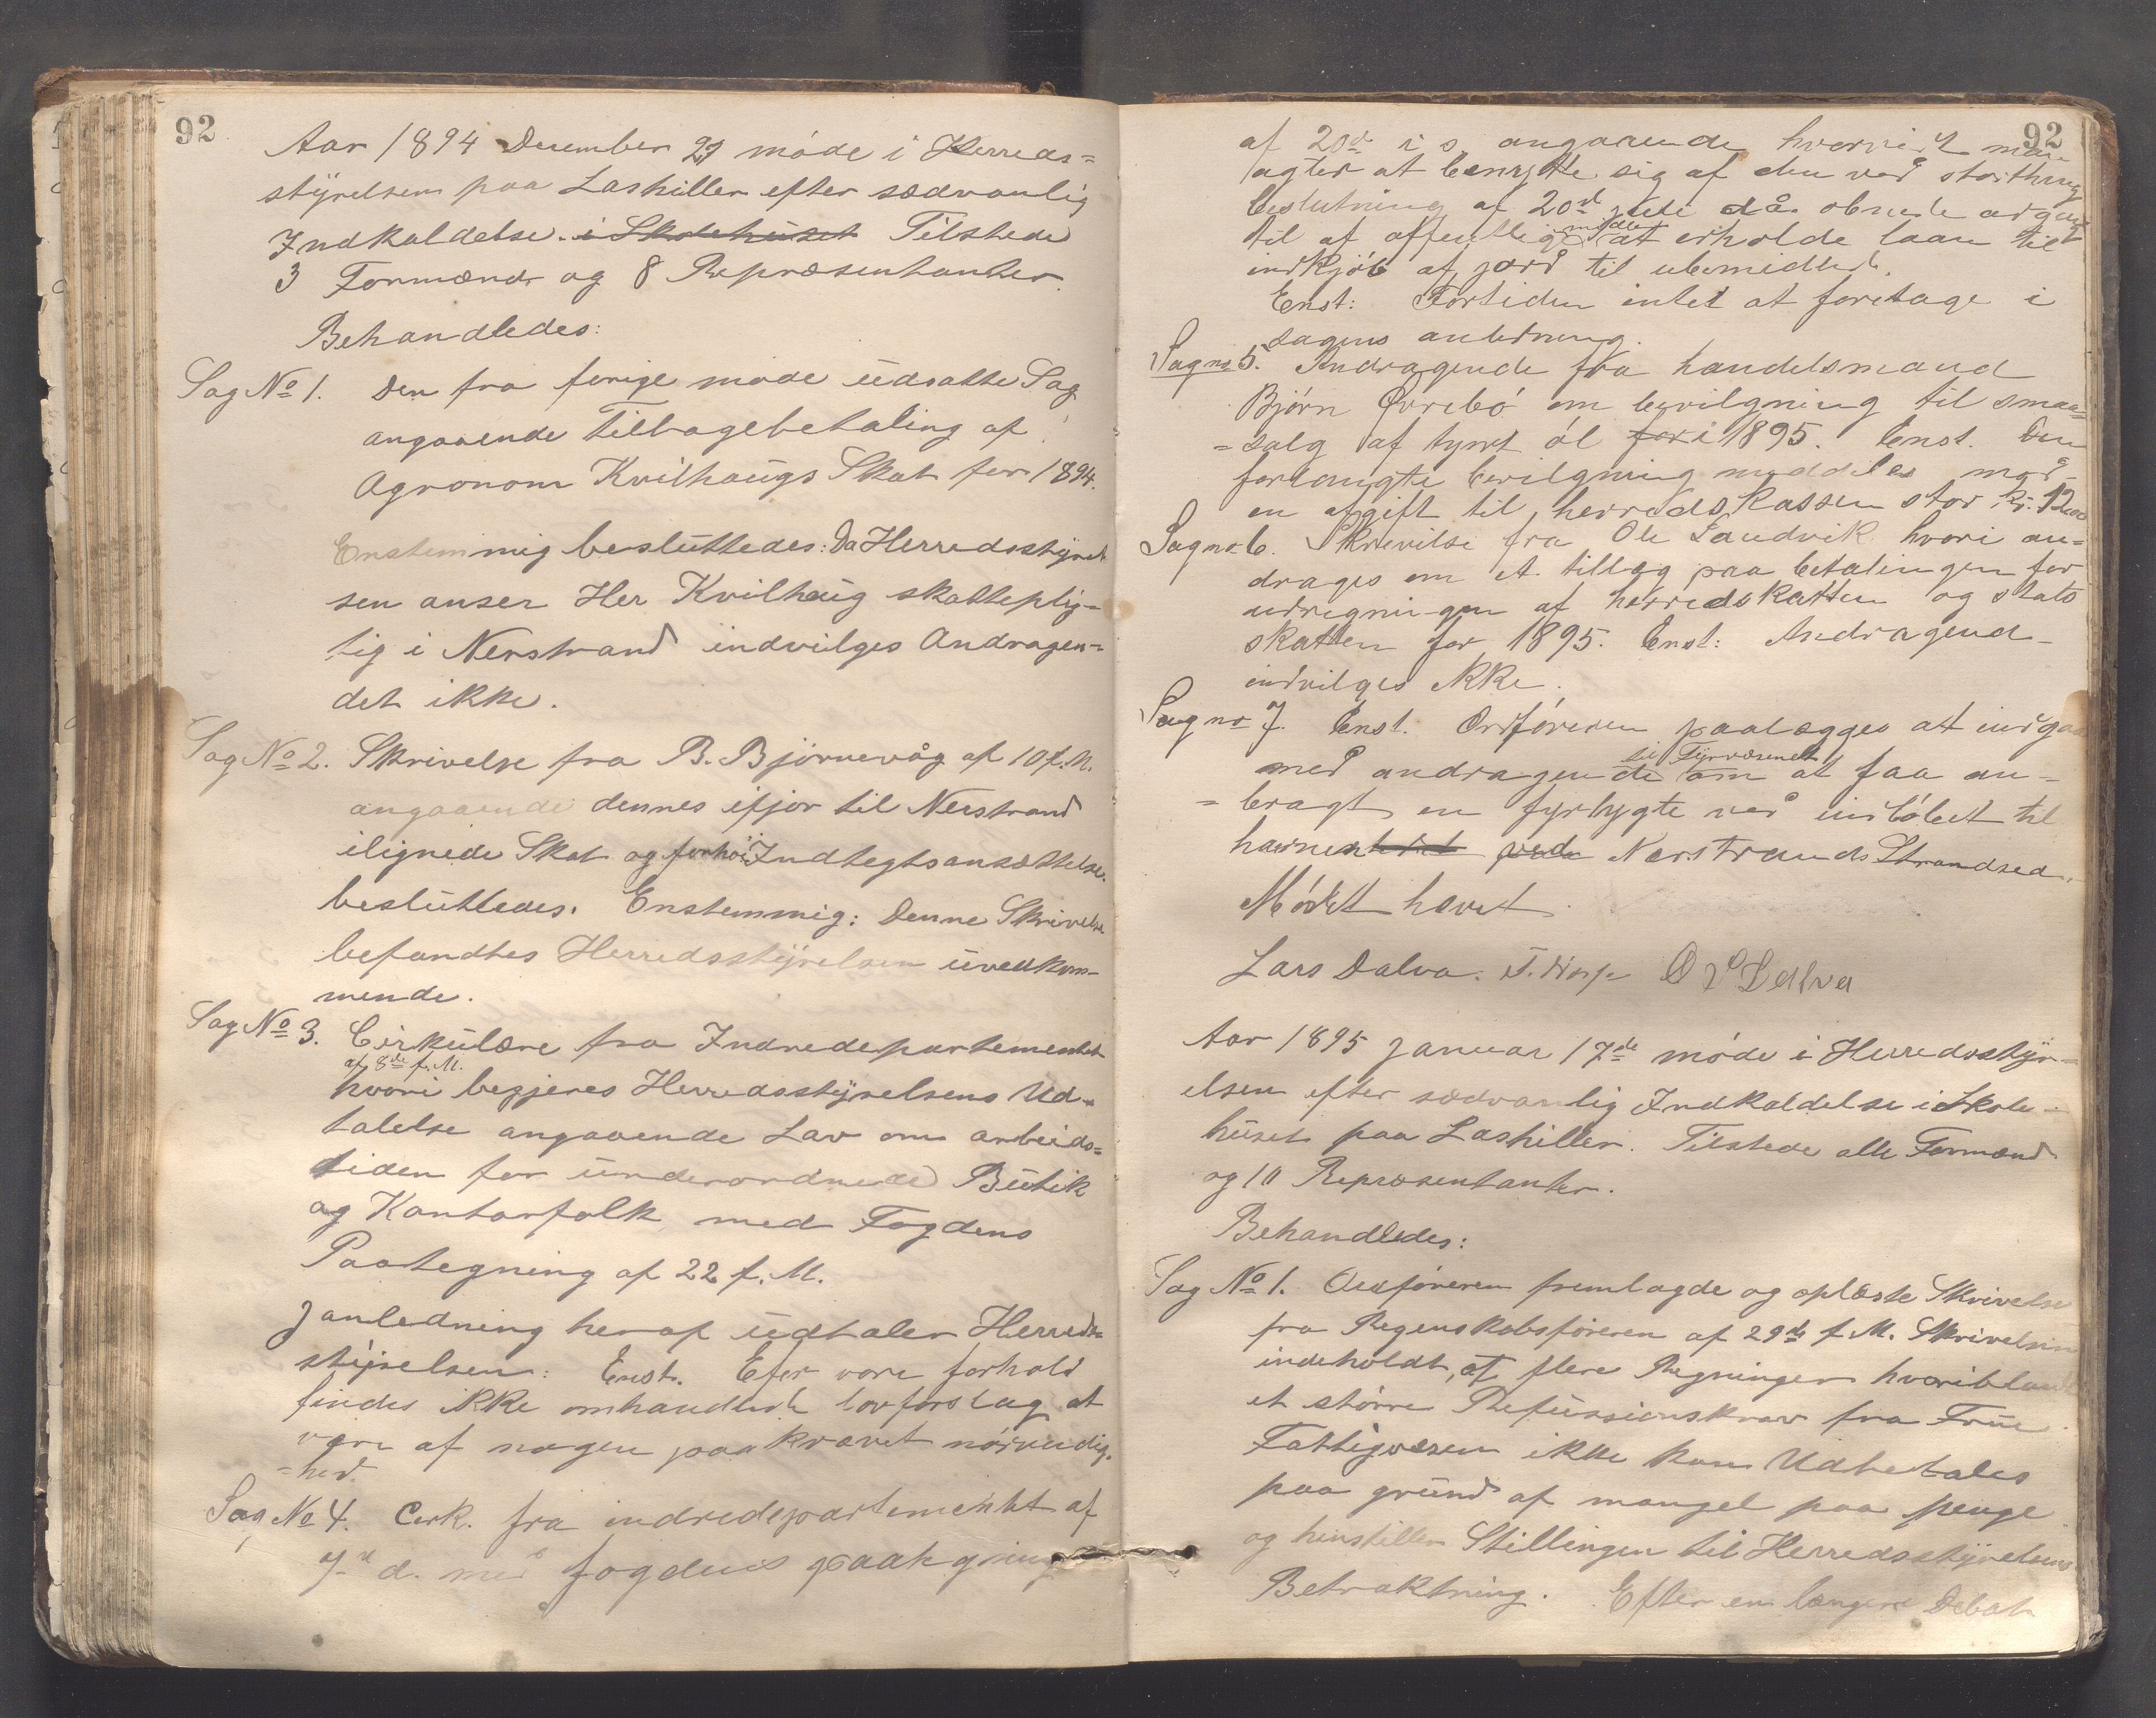 92
Aar 1894 December 27 møde i Herreds=
styrelsen paa Lashiller efter sædvanlig
Indkaldelse. i Skolehuset Tilstede
3 Formænd og 8 Repræsentanter.
Behandledes:
Sag No 1. Den fra forige møde udsatte Sag
angaaende Tilbagebetaling af
Agronom Kvilhaugs Skat for 1894.
Enstemmig besluttedes: Da Herredsstyrel
sen anser Her Kvilhaug skatteplig=
tig i Nerstrand indvilges Andragen=
det ikke.
Sag No 2. Skrivelse fra B. Bjørnevåg af 10 f. M.
angaaende dennes ifjor til Nerstrand
ilignede Skat og forhøi Indtegtsansættelse.
besluttedes. Enstemmig: Denne Skrivelse
befandtes Herredsstyrelsen uvedkom-
mende.
Sag No 3. Cirkulære fra Indredepartementet
af 8de f. M.
hvori begjeres Herredsstyrelsens Ud=
talelse angaaende Lov om arbeids=
tiden for underordnede Butik
og Kontorfolk med Fogdens
Paategning af 22 f. M.
J anledning heraf udtaler Herreds=
styrelsen: Enst. Efer vore forhold
findes ikke omhandlede lovforslag at
være af nogen paakrævet nødvendig.
=hed.
Sag No 4. Cirk. fra indredepartementet af
d. med fogdens paategning
92
af 20de i s. angaaende hvorvidt man
agter at benytte sig af den ved storthings
beslutning af 20de juli då. obnede adgang
til af offentlige midler at erholde laan til
indkjøb af jord til ubemidlede.
Enst: Fortiden intet at foretage i
sagens anledning.
Sag no 5. Andragende fra handelsmand
Bjørn Øvrebø om bevilgning til smaa=
=salg af tynt øl for i 1895. Enst. Den
forlangte bevilgning meddeles mod
en afgift til herredskassen stor kr. 12,00
Sag no 6. Skrivelse fra Ole Sandvik hvori an=
drages om et tillæg paa betalingen for
udregningen af herredskatten og stats
skatten for 1895. Enst: Andragend-
indvilges ikke.
Sag no 7. Enst. Ordføreren paalægges at indgaa
med andragende til Fyrvæsenet om at faa an=
=bragt en fyrlygte ved indløbet til
havnen ved Nerstrands Strandsed.
Mødet hævet.
Lars Dalva. T. Norje O L Dalva
Aar 1895 Januar 17de møde i Herredsstyr=
elsen efter sædvanlig Indkaldelse i Skole=
huset paa Lashiller. Tilstede alle Formænd
og 10 Repræsentanter.
Behandledes:
Sag No 1. Ordføreren fremlagde og oplæste Skrivelse
fra Regenskabsføreren af 29de f. M. Skrivelsen
indeholdt, at flere Regninger hvoriblandt
et større Refusionskrav fra Frue
Fattigvæsen ikke kan Udbetales
paa grund af mangel paa penge
og henstiller Stillingen til Herredsstyrelsens
Betraktning. Efter en længere Debat